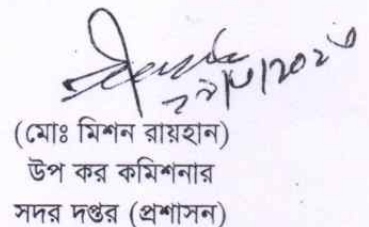 (মোঃ মিশন রায়হান)
উপ কর কমিশনার
সদর দপ্তর (প্রশাসন)